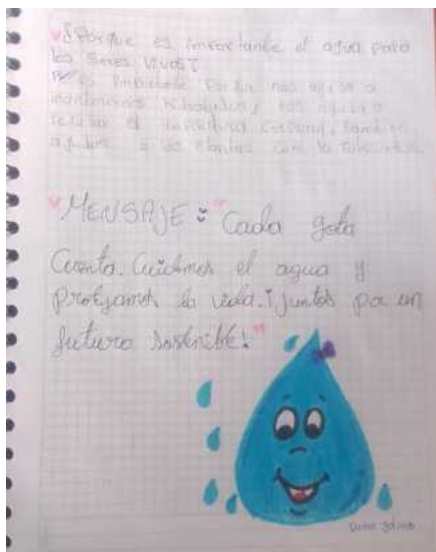 ¿Porque es importante el agua para
los seres vivos?
R/ es importante porque nos ayuda a
mantenernos hidratados y nos ayuda a
regular el corporal, también
ayuda a las plantas con la
MENSAJE: "Cada gota
Cuenta. Cuidemos el agua y
protejamos la vida. ¡Juntos por un
futuro sostenible!"